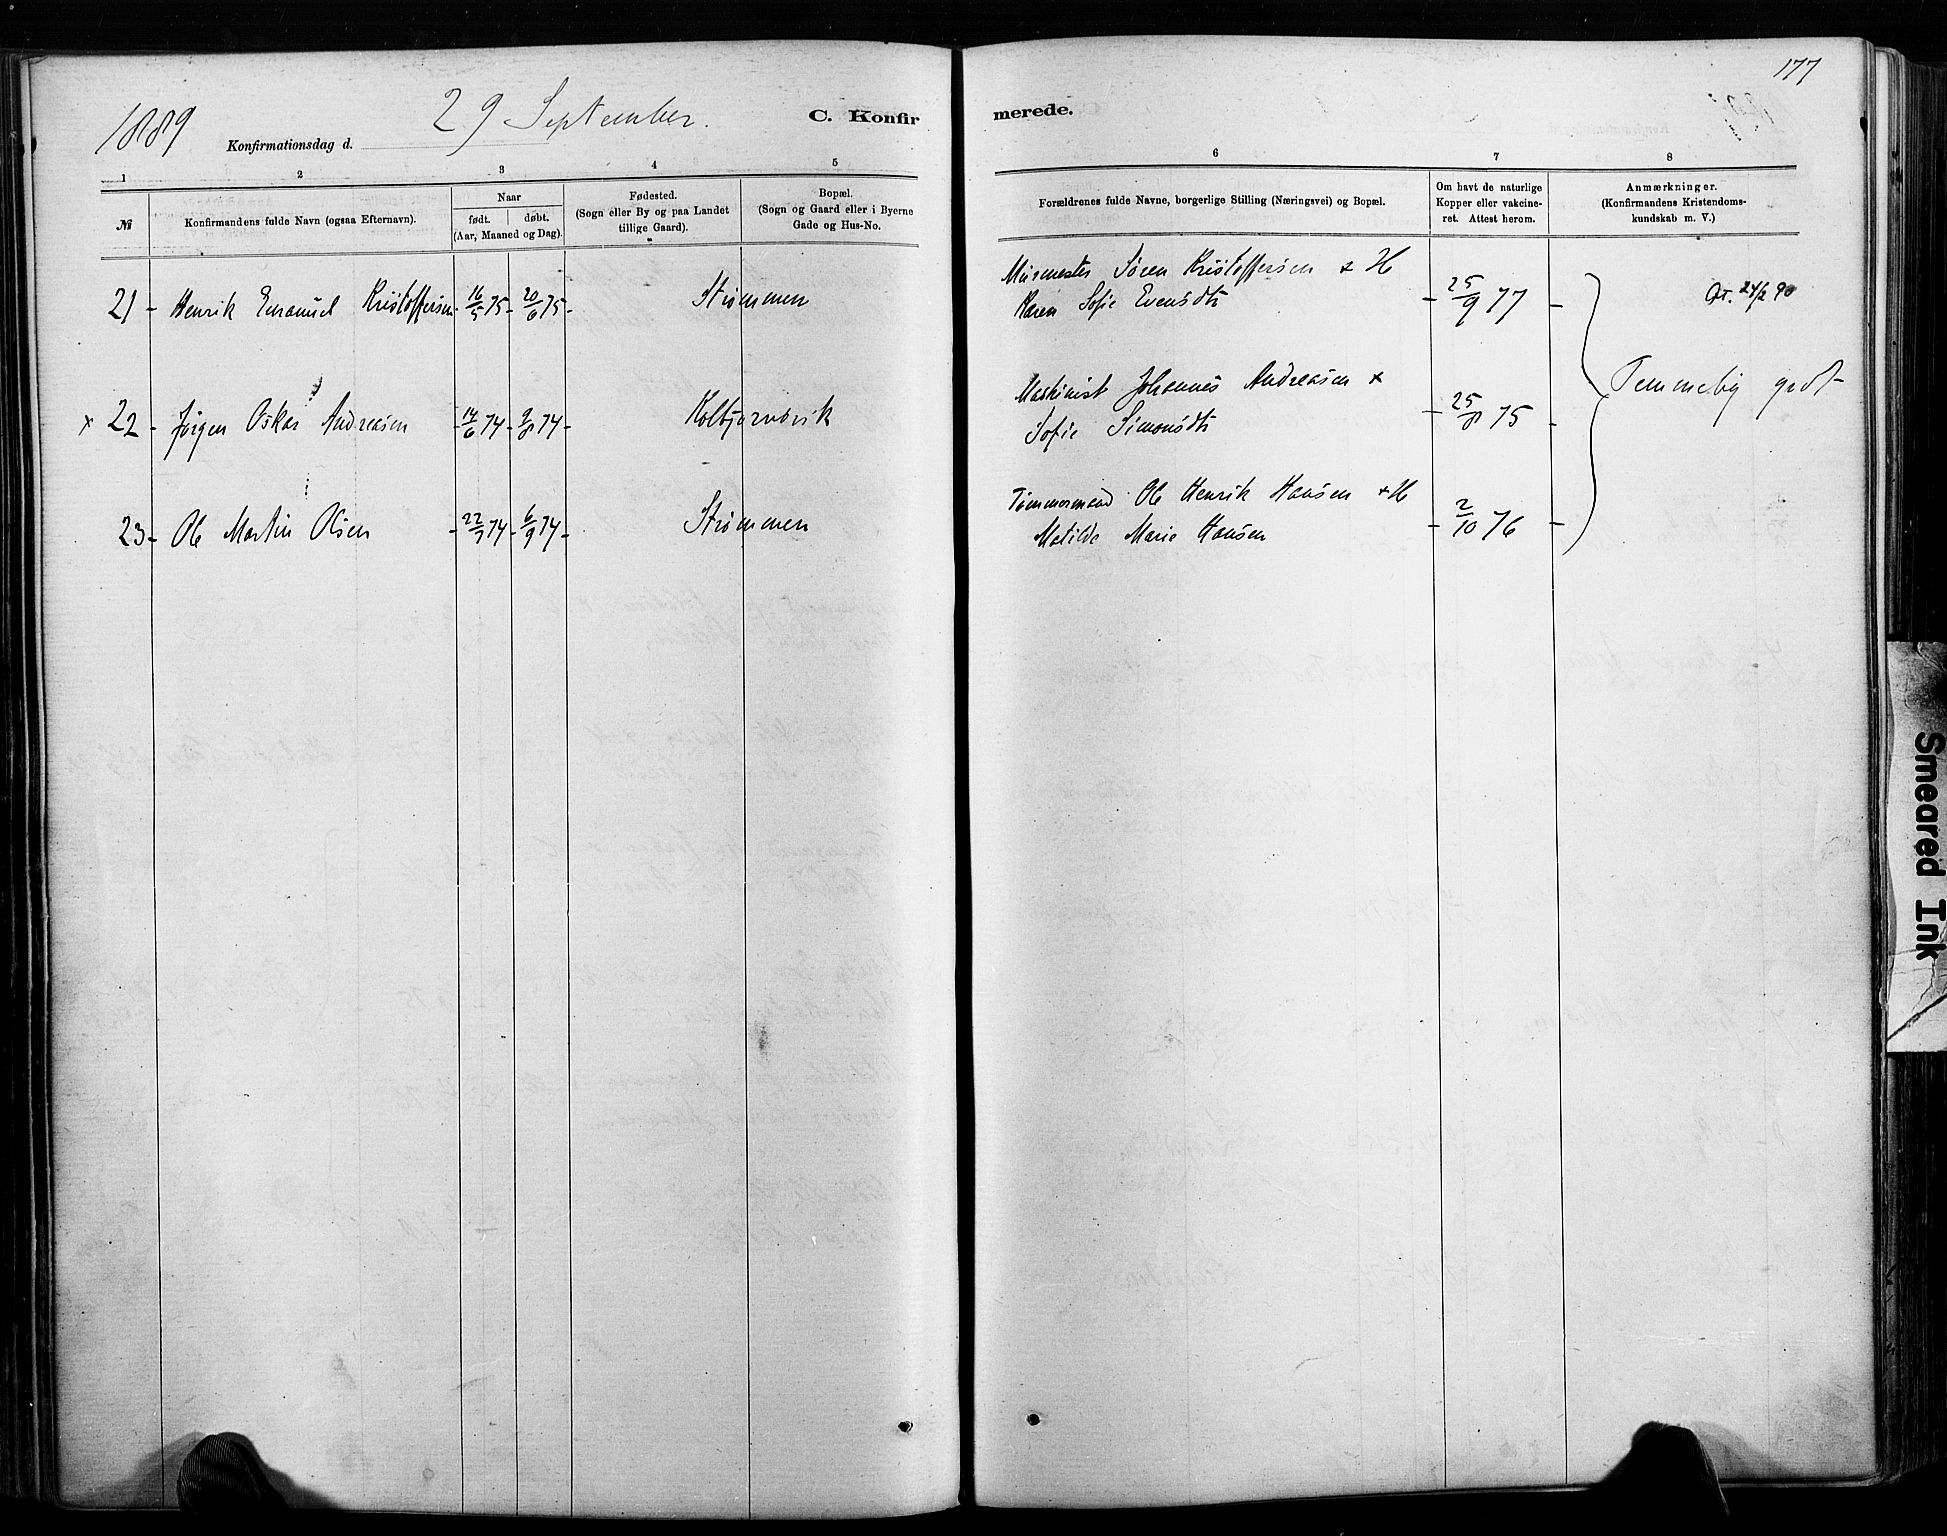 177
1889
29 September.
C. Konfirmerede.
Konfirmationsdag d.
1 2 3 4 5 6 7 8
№
Konfirmandens fulde Navn (ogsaa Efternavn).
Naar
født. døbt.
(Aar, Maaned og Dag).
Fødested.
(Sogn eller By og paa Landet
tillige Gaard).
Bopæl.
(Sogn og Gaard eller i Byerne
Gade og Hus-No.
Forældrenes fulde Navne, borgerlige Stilling (Næringsvei) og Bopæl.
Om havt de naturlige
Kopper eller vakcine-
ret. Attest herom.
Anmærkninger.
(Konfirmandens Kristendoms-
kundskab m. V.)
21 - Henrik Emanuel Kristoffersen - 16/5 75 - 20/6 75 - Strømmen
Murmester Søren Kristoffersen & H
Karen Sofie Evensdtr - 25/9 77 -
At. 24/2 90
x 22 - Jørgen Oskar Andreasen - 14/6 74 - 9/8 74 - Kolbjørnsvik
Maskinist Johannes Andreasen &
Sofie Simonsdtr - 25/8 75 -
Temmelig godt
23 - Ole Martin Olsen - 22/7 74 - 6/9 74 - Strømmen
Tømmermand Ole Henrik Hansen & H
Matilde Marie Hansen - 2/10 76 -
Smeared Ink